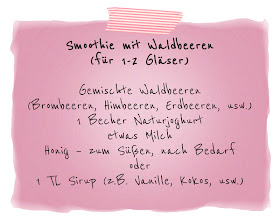 Smoothie mit Waldbeeren
(für 1-2 Gläser)
Gemischte Waldbeeren
(Brombeeren, Himbeeren, Erdbeeren, usw.)
1 Becher Naturjoghurt
etwas Milch
Honig - zum Süßen, nach Bedarf
oder
1 TL Sirup (z.B. Vanille, Kokos, usw.)